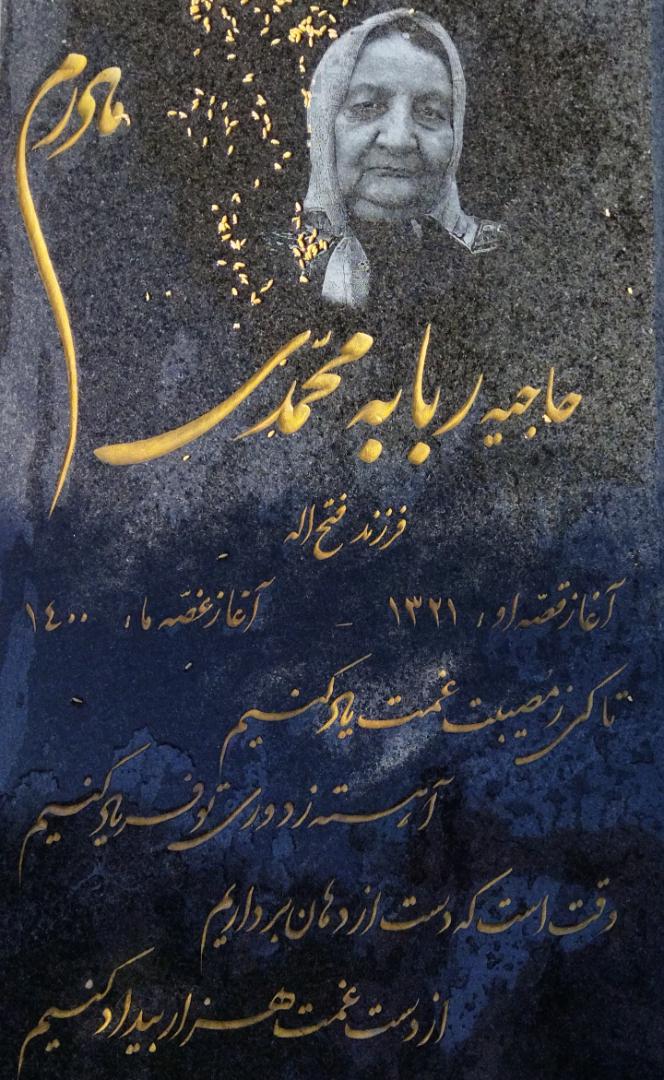 مادرم
حاجیه ربابه محمّدی
فرزند فتح اله
آغاز قصّه او، ۱۳۲۱ _ آغاز غصّه ما، ۱٤۰۰
تا کی ز مُصیبت غمت یاد کنیم
آهسته ز دوری تو فریاد کنیم
وقت است که دست از دهان برداریم
از دست غمت هزار بیداد کنیم